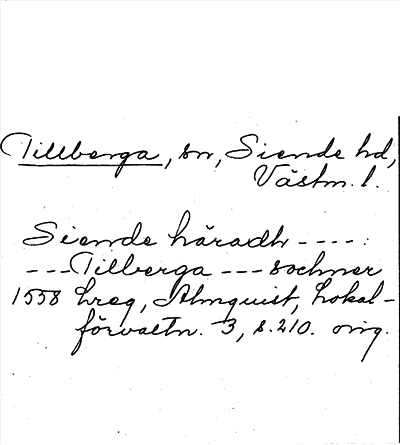 Tillberga, sn, Siende hd,
Västm. l.
Siende häradh ----:
---Tilberga --- sochner
1558 Lreg, Almquist, Lokal-
förvaltn. 3, s. 210. orig.